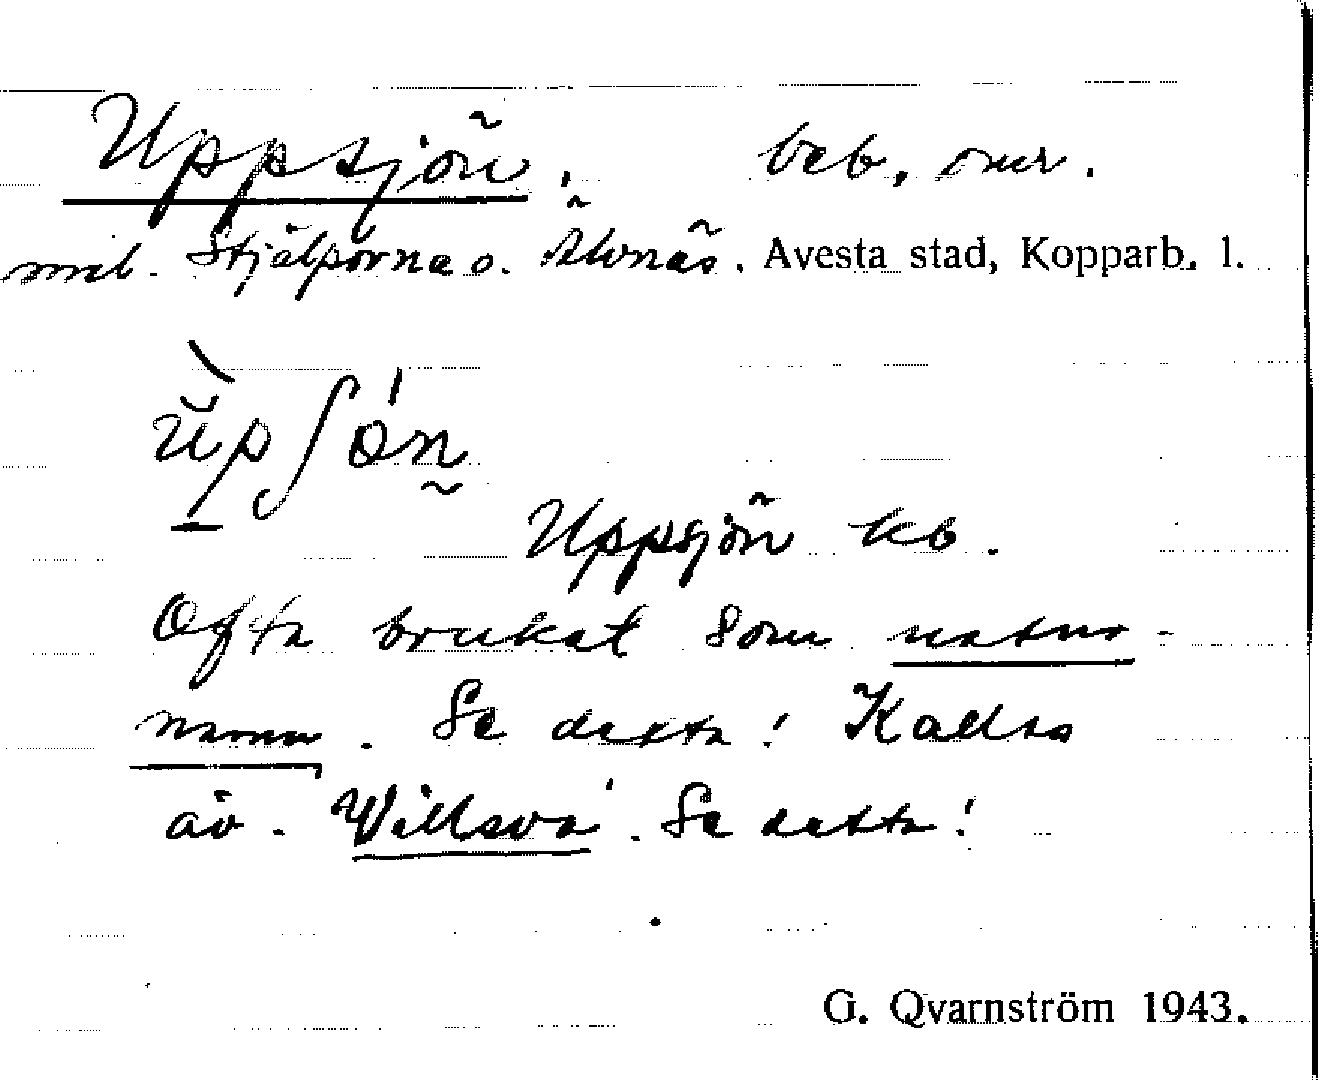 Uppsjön, beb, omr.
mel. Stjälporna o. Älvnäs. Avesta stad, Kopparb. l.
ùpʃón
Uppsjön kb.
Ofta brukat som natur-
namn. Se detta! Kallas
äv. Villsva. Se detta!
G. Qvarnström 1943.